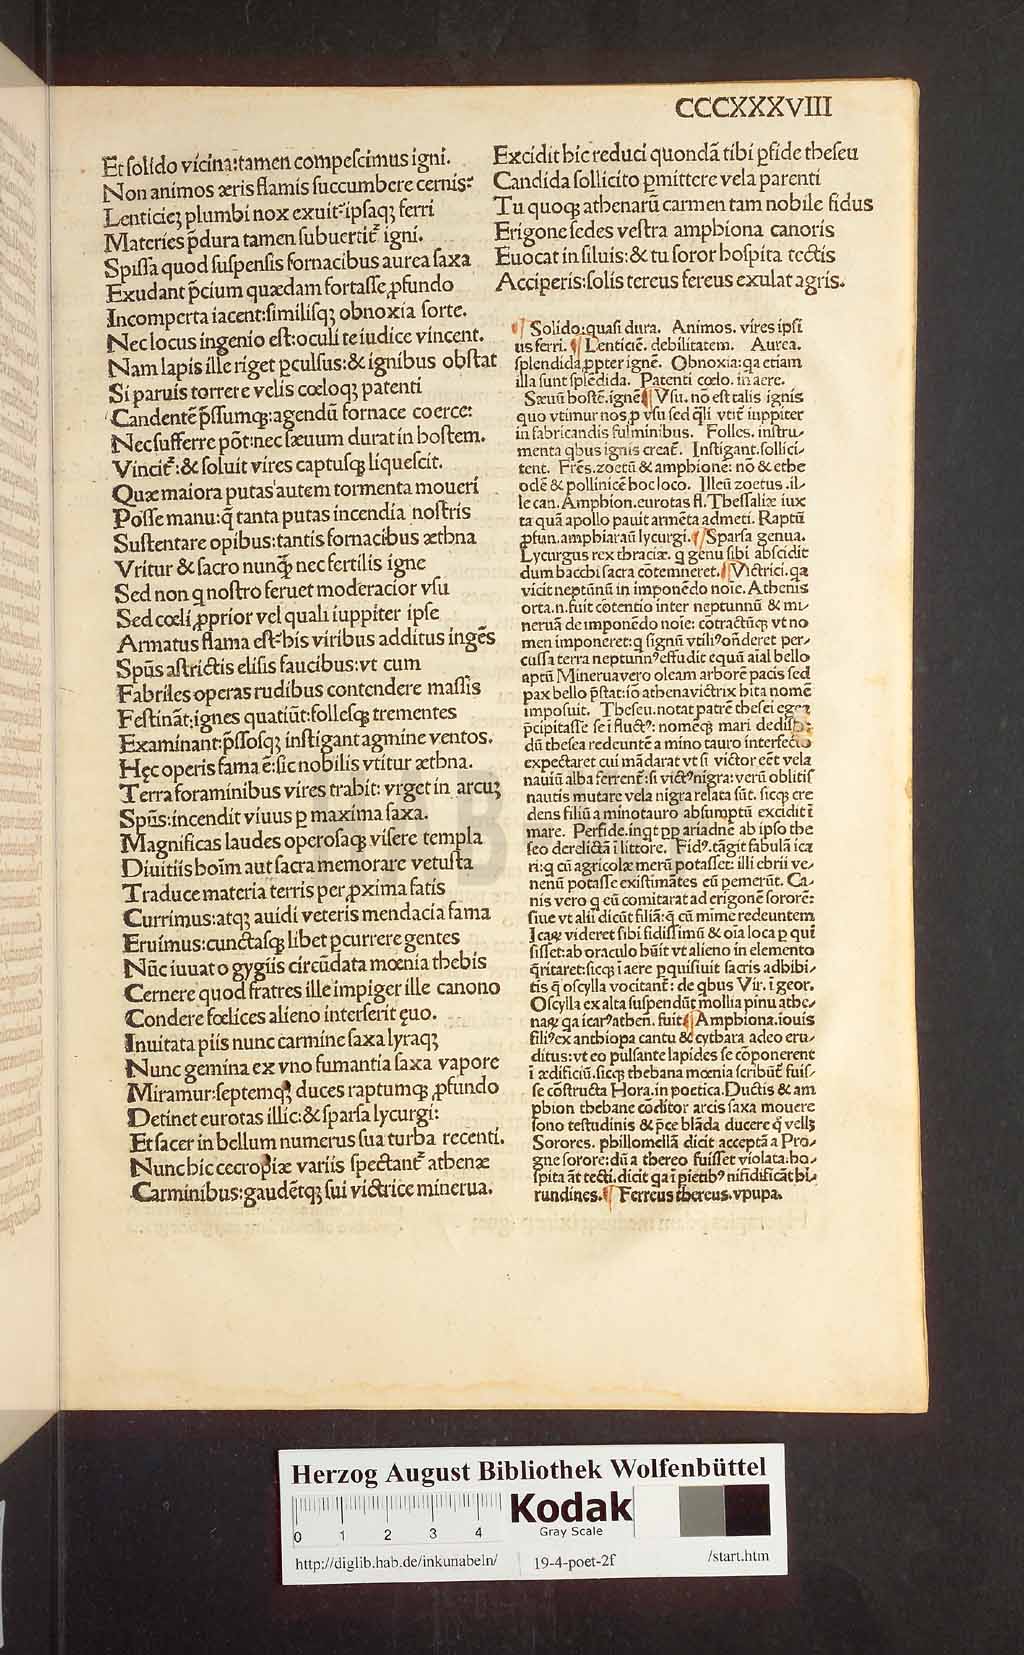 CCCXXXVIII
Et solido vicina:tamen compescimus igni.
Non animos æris flamis succumbere cernis?
Lenticieꝫ plumbi nox exuit?ipsaqꝫ ferri
Materies p̃dura tamen subuertit᷒ igni.
Spissa quod suspensis fornacibus aurea saxa
Exudant p̃cium quædam fortasse ꝓfundo
Incomperta iacent:similisqꝫ obnoxia sorte.
Nec locus ingenio est:oculi te iudice vincent.
Nam lapis ille riget ꝑculsus:& ignibus obstat
Si paruis torrere velis cœloqꝫ patenti
Candentē p̃ssumqꝫ:agendū fornace coerce:
Nec sufferre põt:nec sæuum durat in hostem.
Vincit᷒:& soluit vires captusqꝫ liquescit.
Quæ maiora putas autem tormenta moueri
Posse manu:q̃ tanta putas incendia nostris
Sustentare opibus:tantis fornacibus æthna
Vritur & sacro nunq̃ nec fertilis igne
Sed non q nostro feruet moderacior vsu
Sed cœli ꝓprior vel quali iuppiter ipse
Armatus flama est?his viribus additus ingēs
Spūs astrictis elisis faucibus:vt cum
Fabriles operas rudibus contendere massis
Festināt:ignes quatiūt:follesqꝫ trementes
Examinant:p̃ssosqꝫ instigant agmine ventos.
Hęc operis fama ē:sic nobilis vtitur æthna.
Terra foraminibus vires trahit: vrget in arcuꝫ
Spūs:incendit viuus ꝑ maxima saxa.
Magnificas laudes operosaqꝫ visere templa
Diuitiis hoīm aut sacra memorare vetusta
Traduce materia terris per ꝓxima fatis
Currimus:atqꝫ auidi veteris mendacia fama
Eruimus:cunctasqꝫ libet ꝑcurrere gentes
Nūc iuuat ogygiis circūdata mœnia thebis
Cernere quod fratres ille impiger ille canono
Condere fœlices alieno interserit ęuo.
Inuitata piis nunc carmine saxa lyraqꝫ
Nunc gemina ex vno fumantia saxa vapore
Miramur:septemqꝫ duces raptumqꝫ ꝓfundo
Detinet eurotas illic:& sparsa lycurgi:
Et sacer in bellum numerus sua turba recenti.
Nunc hic cecropiæ variis spectant᷒ athenæ
Carminibus:gaudētqꝫ sui victrice minerua.
Excidit hic reduci quondā tibi ꝑfide theseu
Candida sollicito ꝑmittere vela parenti
Tu quoqꝫ athenarū carmen tam nobile sidus
Erigone sedes vestra amphiona canoris
Euocat in siluis:& tu soror hospita tectis
Acciperis:solis tereus fereus exulat agris.
¶ Solido:quasi dura. Animos. vires ipsi
us ferri. ¶ Lenticiē. debilitatem. Aurea.
splendida ꝓpter ignē. Obnoxia:qa etiam
illa sunt splēdida. Patenti cœlo. in aere.
Sæuū hostē.ignē¶ Vsu. nō est talis ignis
quo vtimur nos ꝑ vsu sed q̃li vtit᷒ iuppiter
in fabricandis fulminibus. Folles. instru⸗
menta qbus ignis creat᷒. Instigant.sollici⸗
tent. Fr̄es.zoetū & amphione: nō & ethe
odē & pollinicē hoc loco. Illeū zoetus .il⸗
le can.Amphion.eurotas fl. Thessaliæ iux
ta quā apollo pauit armēta admeti. Raptū
ꝓfun.amphiaraū lycurgi.¶ Sparsa genua.
Lycurgus rex thraciæ. q genu sibi abscidit
dum bacchi sacra cōtemneret.¶ Victrici.qa
vicit neptūnū in imponēdo noīe. Athenis
orta.n.fuit cōtentio inter neptunnū & mi⸗
neruā de imponēdo noīe: cōtractūqꝫ vt no
men imponeret:q signū vtiliꝰ oñderet per⸗
cussa terra neptunnꝰ effudit equū aīal bello
aptū Minerua vero oleam arborē pacis sed
pax bello p̃stat:iō athena victrix hita nomē
imposuit. Theseu.notat patrē thesei egea
p̃cipitasse se ī fluctꝰ: nomēqꝫ mari dedisse:
dū thesea redeuntē a mino tauro interfecto
expectaret cui mādarat vt si victor eēt vela
nauiū alba ferrent᷒:si victꝰ nigra: verū oblitis
nautis mutare vela nigra relata sūt. sicqꝫ cre
dens filiū a minotauro absumptū excidit ī
mare. Perfide.inqt ꝓp ariadnē ab ipso the
seo derelictā ī littore. Fidꝰ.tāgit fabulā ica
ri:q cū agricolæ merū potasset: illi ebrii ve⸗
nenū potasse existimātes eū ꝑemerūt. Ca⸗
nis vero q eū comitarat ad erigonē sororē:
siue vt alii dicūt filiā:q̃ cū mime redeuntem
Icaꝝ videret sibi fidissimū & oīa loca ꝑ qui
sisset:ab oraculo hūit vt alieno in elemento
q̃ritaret:sicqꝫ ī aere ꝑquisiuit sacris adhibi⸗
tis q̃ oscylla vocitant᷒: de qbus Vir. ī geor.
Oscylla ex alta suspendūt mollia pinu athe⸗
naꝝ qa icarꝰ athen̄. fuit¶ Amphiona.iouis
filiꝰ ex anthiopa cantu & cythara adeo eru⸗
ditus:vt eo pulsante lapides se cōponerent
ī ædificiū.sicqꝫ thebana mœnia scribūt᷒ fuis⸗
se cōstructa Hora.in poetica.Ductis & am
phion thebane cōditor arcis saxa mouere
sono testudinis & p̃ce blāda ducere q̃ vellꝫ
Sorores. phillomellā dicit acceptā a Pro⸗
gne sorore:dū a thereo fuisset violata:ho⸗
spita āt tecti.dicit qa ī pietibꝰ nifidificāt hi⸗
rundines.¶ Ferreus thereus.vpupa.
Herzog August Bibliothek Wolfenbüttel
0 1 2 3 4
Kodak
Gray Scale
http://diglib.hab.de/inkunabeln/ 19-4-poet-2f /start.htm